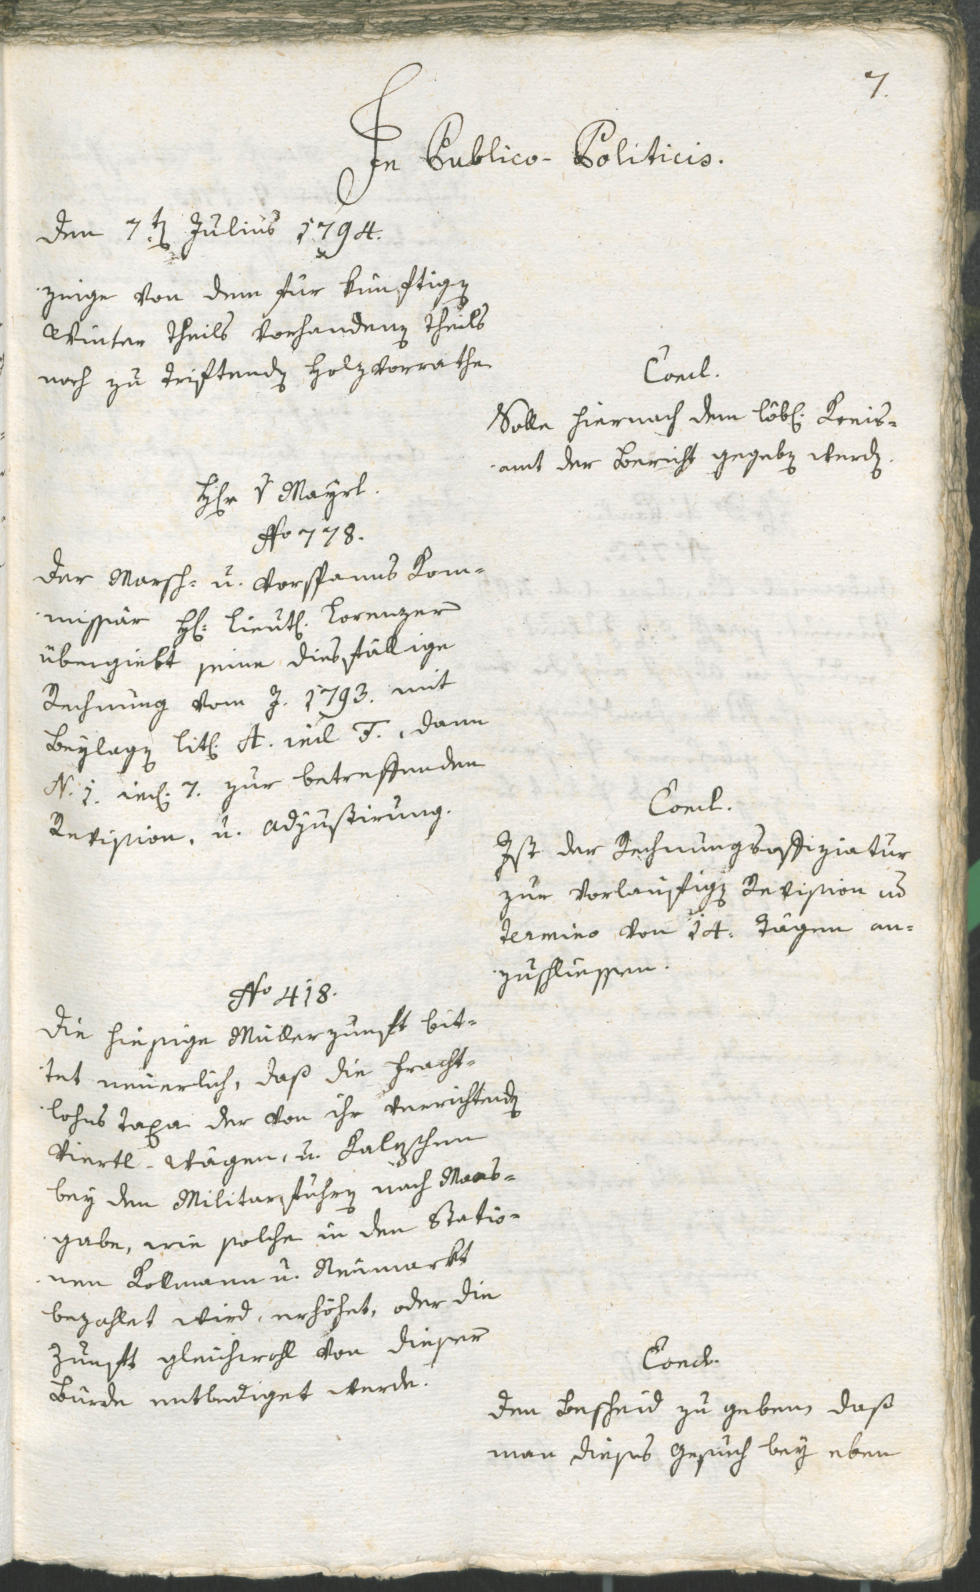 7.
In Publico-Politicis.
Den 7.ten Julius 1794.
zeige von dem für künftigen
Winter theils vorhandenen theils
noch zu triftenden Holzvorrathe
Concl.
Solle hiernach dem löbl. Kreis=
amt der Bericht gegeben werden.
Hr v Mayrl.
No 778.
Der Marsch= u. Vorspanns Kom=
missär H: Lieut. Lorenzer
übergiebt seine diesfällige
Rechnung vom J. 1793. mit
Beylagen lit. A. incl F., dann
N. 1. incl. 7. zur betreffenden
Revision, u. Adjustirung.
Concl.
Ist der Rechnungsoffiziatur
zur vorläufigen Revision in
termino von 14. Tägen an=
zuschliessen.
No 418.
Die hiesige Müllerzunft bit=
tet neuerlich, daß die Fracht=
lohns taxa der von ihr verrichtenden
Viertl-Wägen, u. Kaleschen
bey den Militarfuhren nach Maas=
gabe, wie solche in den Statio=
nen Kollmann u. Neumarkt
bezahlet wird, erhöhet, oder die
Zunft gleichwohl von dieser
Bürde entlediget werde.
Concl.
Den Bescheid zu geben, daß
man dieses Gesuch bey eben